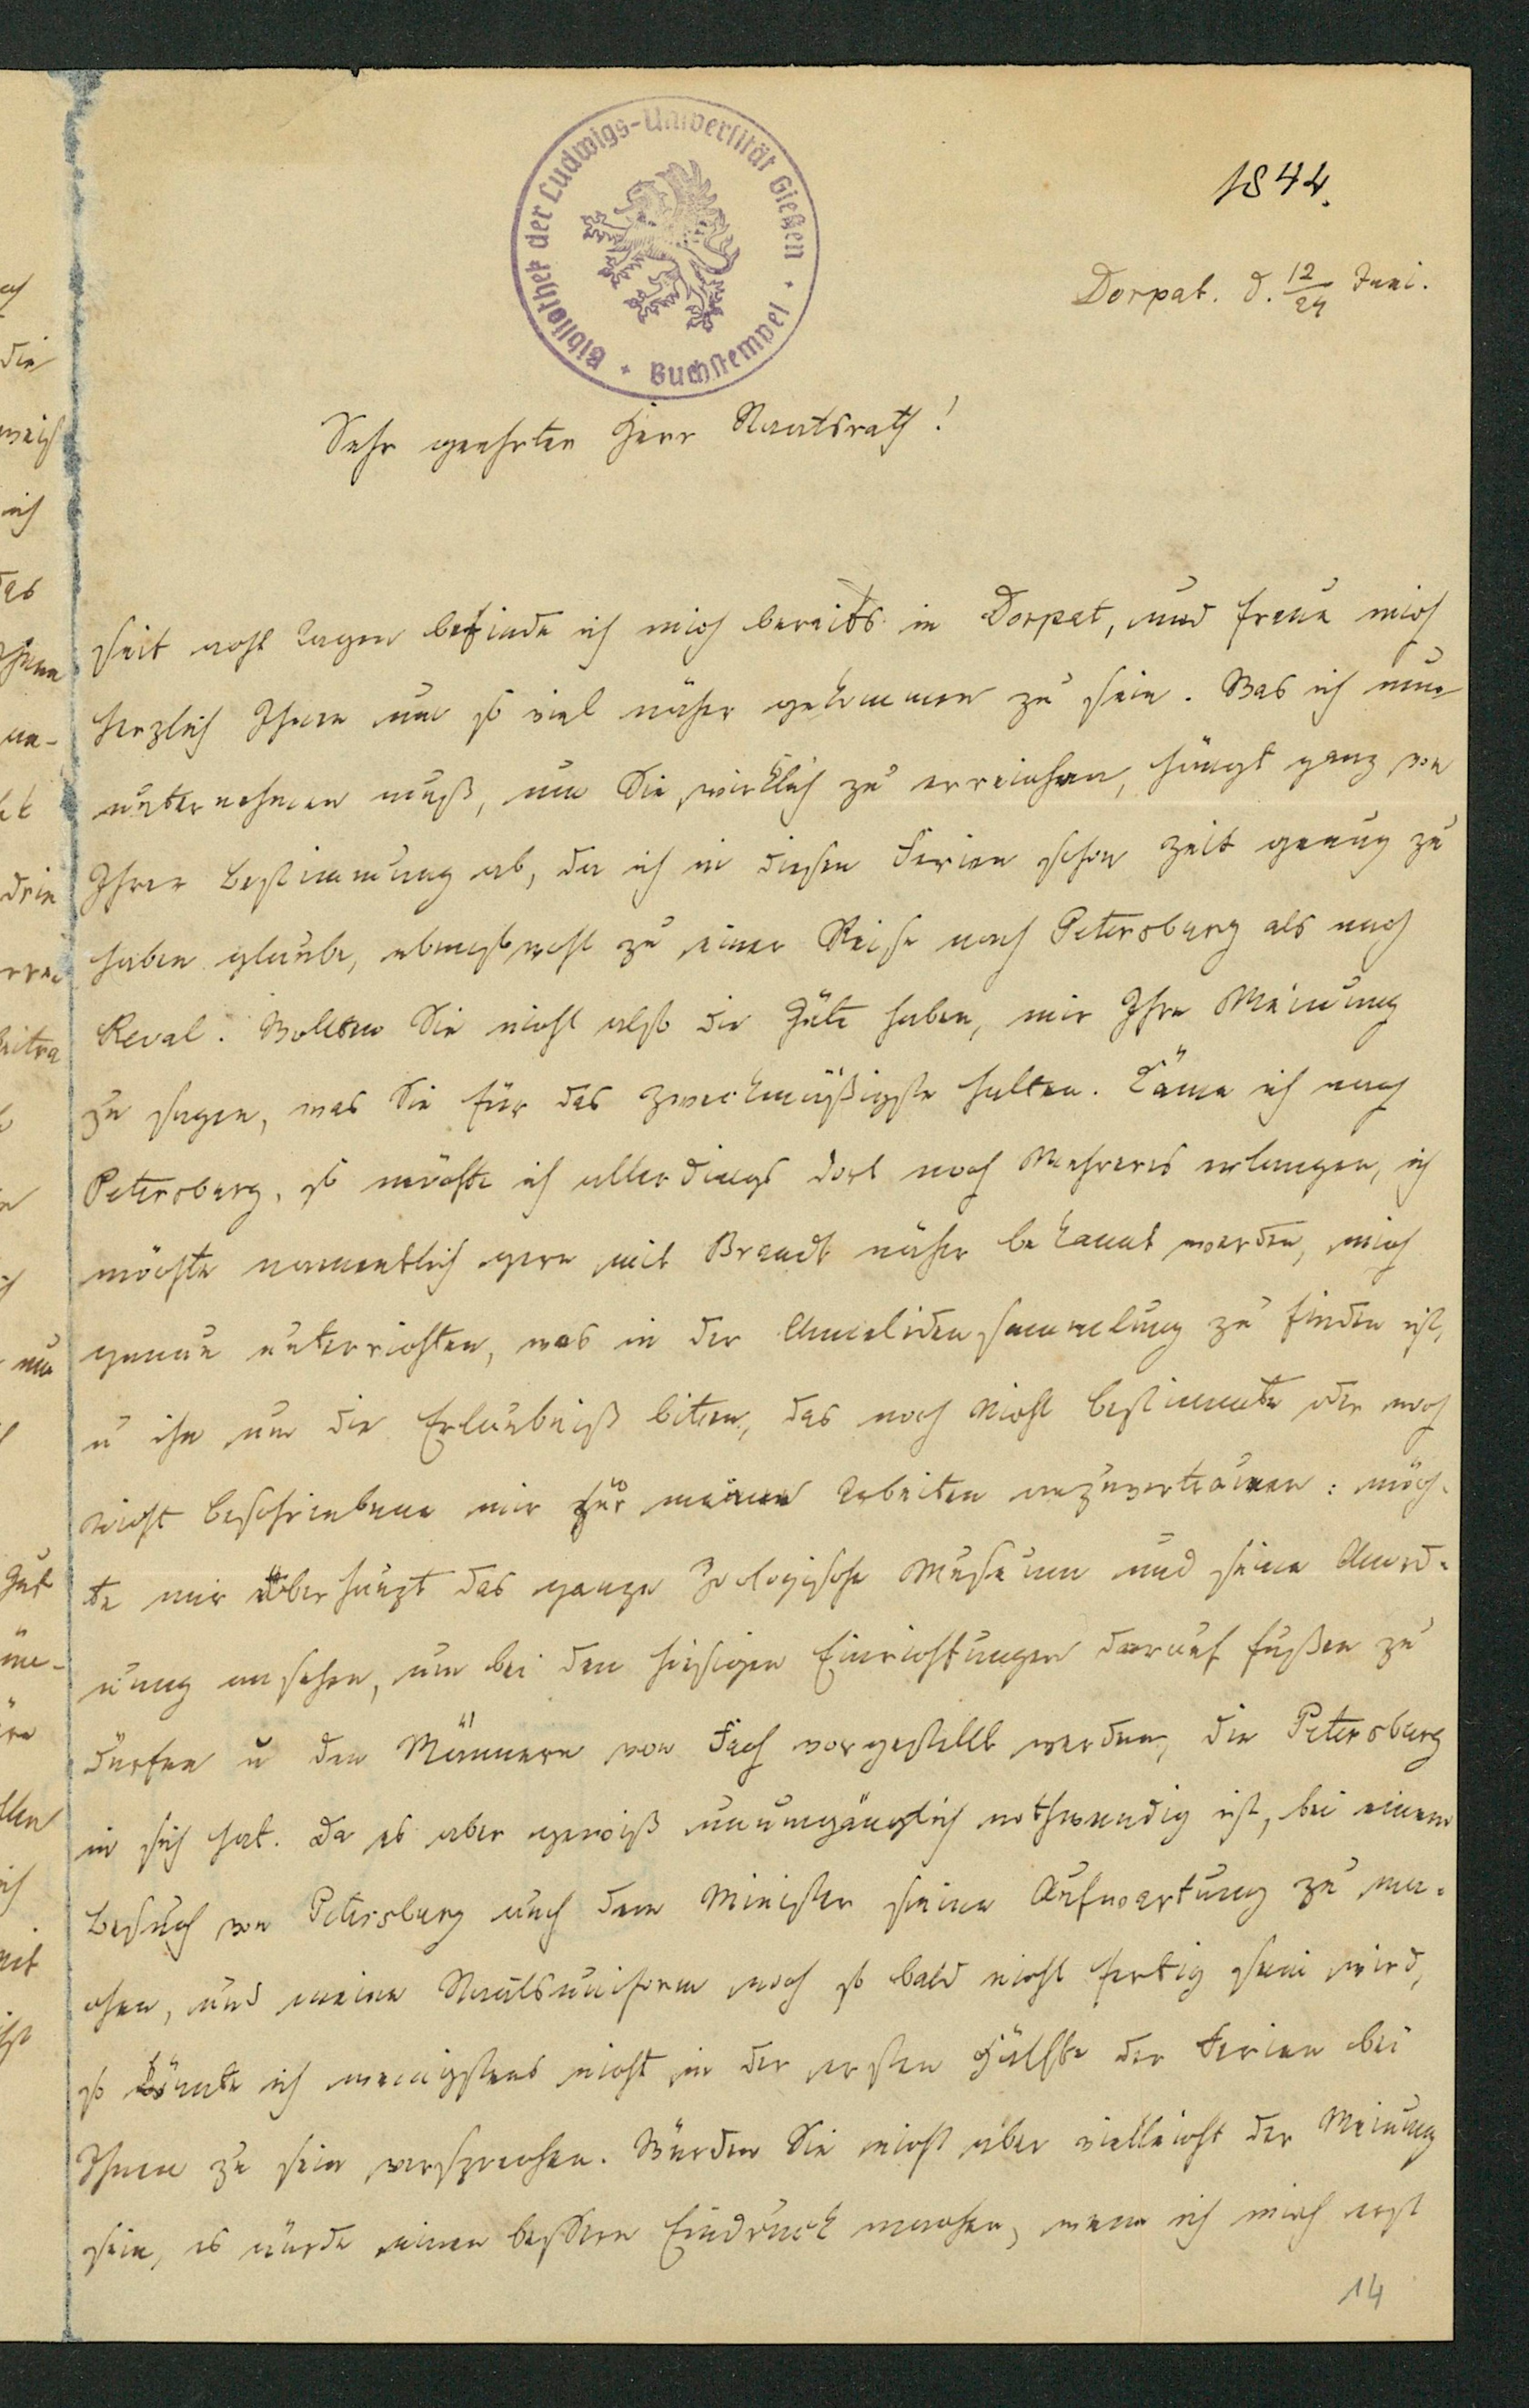 1844.
Bibliothek der Ludwigs-Universität Gießen
Buchstempel
Dorpat. d. 12/24 Juni.
Sehr geehrter Herr Staatsrath!
seit acht Tagen befinde ich mich bereits in Dorpat, und freue mich
herzlich Ihnen um so viel näher gekommen zu sein. Was ich nun
unternehmen muß, um Sie wirklich zu erreichen, hängt ganz von
Ihrer Bestimmung ab, da ich in diesen Ferien schon Zeit genug zu
haben glaube, ebensowohl zu einer Reise nach Petersburg als nach
Reval. Wollten Sie nicht also die Güte haben, mir Ihre Meinung
zu sagen, was Sie für das zweckmäßigste halten. Käme ich nach
Petersburg, so möchte ich allerdings dort noch Mehreres erlangen, ich
möchte namentlich gern mit Brandt näher bekannt werden, mich
genau unterrichten, was in der Annelidensammlung zu finden ist,
u ihn um die Erlaubniß bitten, das noch nicht bestimmte oder noch
nicht beschriebene mir für meine Arbeiten anzuvertrauen: möch-
te mir überhaupt das ganze Zoologische Museum und seine Anord-
nung ansehen, um bei den hiesigen Einrichtungen darauf fußen zu
dürfen u den Männern von Fach vorgestellt werden, die Petersburg
in sich hat. Da es aber gewiß unumgänglich nothwendig ist, bei einem
Besuch von Petersburg auch dem Minister seine Aufwartung zu ma-
chen, und meine Staatsuniform noch so bald nicht fertig sein wird,
so könnte ich wenigstens nicht in der ersten Hälfte der Ferien bei
Ihnen zu sein versprechen. Würden Sie nicht aber vielleicht der Meinung
sein, es würde einen bessern Eindruck machen, wenn ich mich erst
14